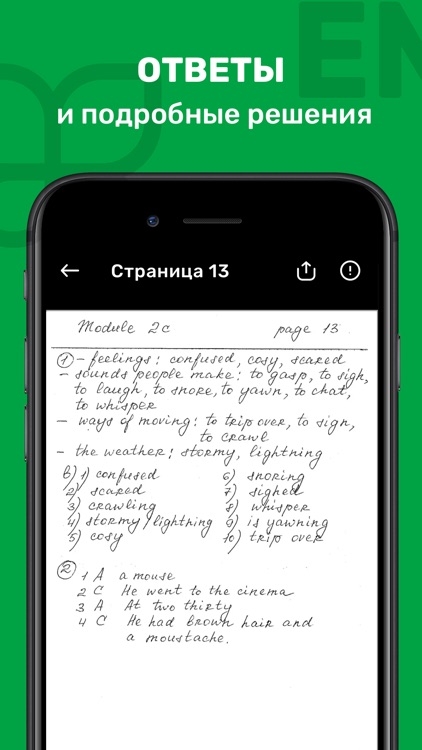 EN
ОТВЕТЫ
и подробные решения
Страница 13
Module 2c page 13
1 - feelings: confused, cosy, scared
- sounds people make: to gasp, to sigh,
to laugh, to snore, to yawn, to chat,
to whisper
- ways of moving: to trip over, to sign,
to crawl
- the weather: stormy, lightning
b) 1) confused
2) scared
3) crawling
4) stormy/lightning
5) cosy
6) snoring
7) sighed
8) whisper
9) is yawning
10) trip over
2 1 A a mouse
2 C He went to the cinema
3 A At two thirty
4 C He had brown hair and
a moustache.